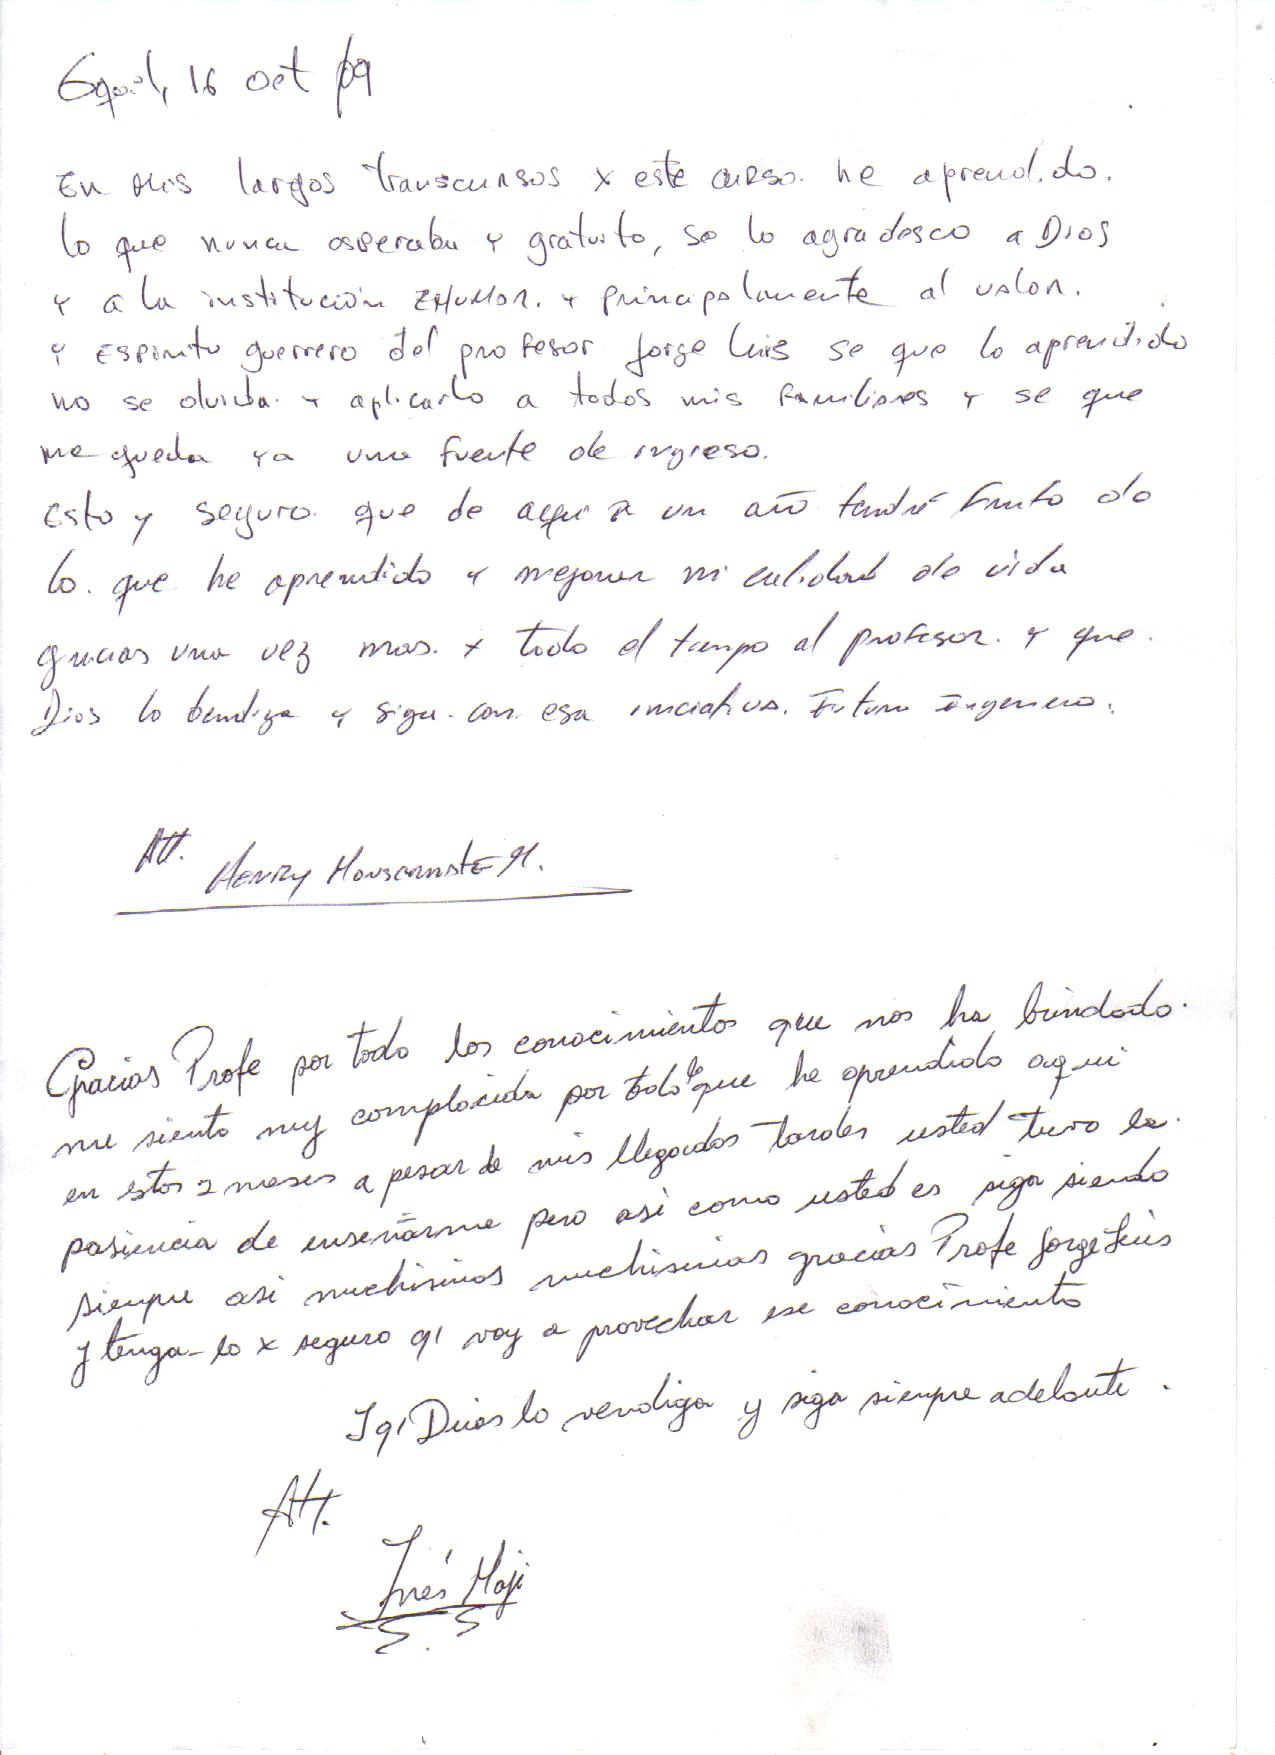 Gquil, 16 oct /09
En mis largos transcursos x este curso. he aprendido.
lo que nunca esperaba y gratuito, se lo agradesco a Dios
y a la institución y principalmente al valor.
y Espiritu guerrero del profesor Jorge Luis se que lo aprendido
no se olvida y aplicarlo a todos mis familiares y se que
me queda ya una fuente de ingreso.
Estoy seguro que de aqui a un año tendré fruto de
lo que he aprendido y mejorar mi calidad de vida
gracias una vez mas. x todo el tiempo al profesor. y que.
Dios lo bendiga y siga con esa iniciativa. Futuro Ingeniero.
Att. Henry
Gracias Profe por todo los conocimientos que nos ha brindado.
me siento muy complacida por todo lo que he aprendido aqui
en estos 2 meses a pesar de mis llegadas tardes usted tuvo la.
pasiencia de enseñarme pero asi como usted es siga siendo
siempre asi muchisimas muchisimas gracias Profe Jorge Luis
y tenga-lo x seguro q' voy a provechar ese conocimiento
Y q' Dios lo vendiga y siga siempre adelante.
Att.
Inés